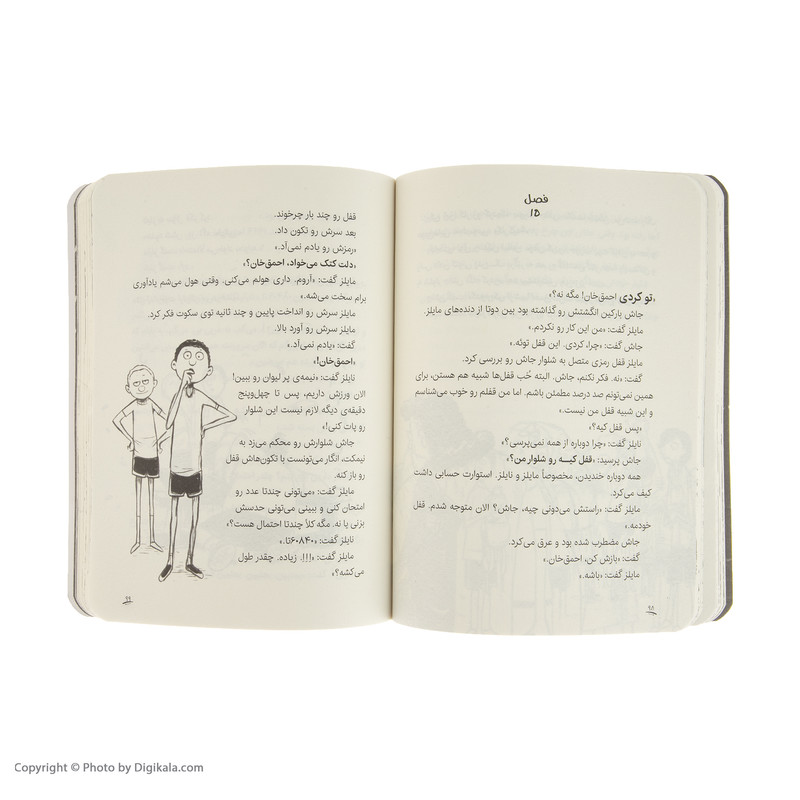 فصل
۱۵
«تو کردی احمق‌خان! مگه نه؟»
جاش بارکین انگشتش رو گذاشته بود بین دوتا از دنده‌های مایلز.
مایلز گفت: «من این کار رو نکردم.»
جاش گفت: «چرا، کردی. این قفل توئه.»
مایلز قفل رمزی متصل به شلوار جاش رو بررسی کرد.
گفت: «نه. فکر نکنم، جاش. البته خُب قفل‌ها شبیه هم هستن، برای
همین نمی‌تونم صد درصد مطمئن باشم. اما من قفلم رو خوب می‌شناسم
و این شبیه قفل من نیست.»
«پس قفل کیه؟»
نایلز گفت: «چرا دوباره از همه نمی‌پرسی؟»
جاش پرسید: «قفل کیـه رو شلوار من؟»
همه دوباره خندیدن، مخصوصاً مایلز و نایلز. استوارت حسابی داشت
کیف می‌کرد.
مایلز گفت: «راستش می‌دونی چیه، جاش؟ الان متوجه شدم. قفل
خودمه.»
جاش مضطرب شده بود و عرق می‌کرد.
گفت: «بازش کن، احمق‌خان.»
مایلز گفت: «باشه.»
۹۸
قفل رو چند بار چرخوند.
بعد سرش رو تکون داد.
«رمزش رو یادم نمی‌آد.»
«دلت کتک می‌خواد، احمق‌خان؟»
مایلز گفت: «آروم. داری هولم می‌کنی. وقتی هول می‌شم یادآوری
برام سخت می‌شه.»
مایلز سرش رو انداخت پایین و چند ثانیه توی سکوت فکر کرد.
مایلز سرش رو آورد بالا.
گفت: «یادم نمی‌آد.»
«احمق‌خان!»
نایلز گفت: «نیمه‌ی پر لیوان رو ببین!
الان ورزش داریم، پس تا چهل‌وپنج
دقیقه‌ی دیگه لازم نیست این شلوار
رو پات کنی!»
جاش شلوارش رو محکم می‌زد به
نیمکت، انگار می‌تونست با تکون‌هاش قفل
رو باز کنه.
مایلز گفت: «می‌تونی چندتا عدد رو
امتحان کنی و ببینی می‌تونی حدسش
بزنی یا نه. مگه کلاً چندتا احتمال هست؟»
نایلز گفت: «۶۰۸۴۰تا.»
مایلز گفت: «اِاِاِ. زیاده. چقدر طول
می‌کشه؟»
۹۹
Copyright © Photo by Digikala.com